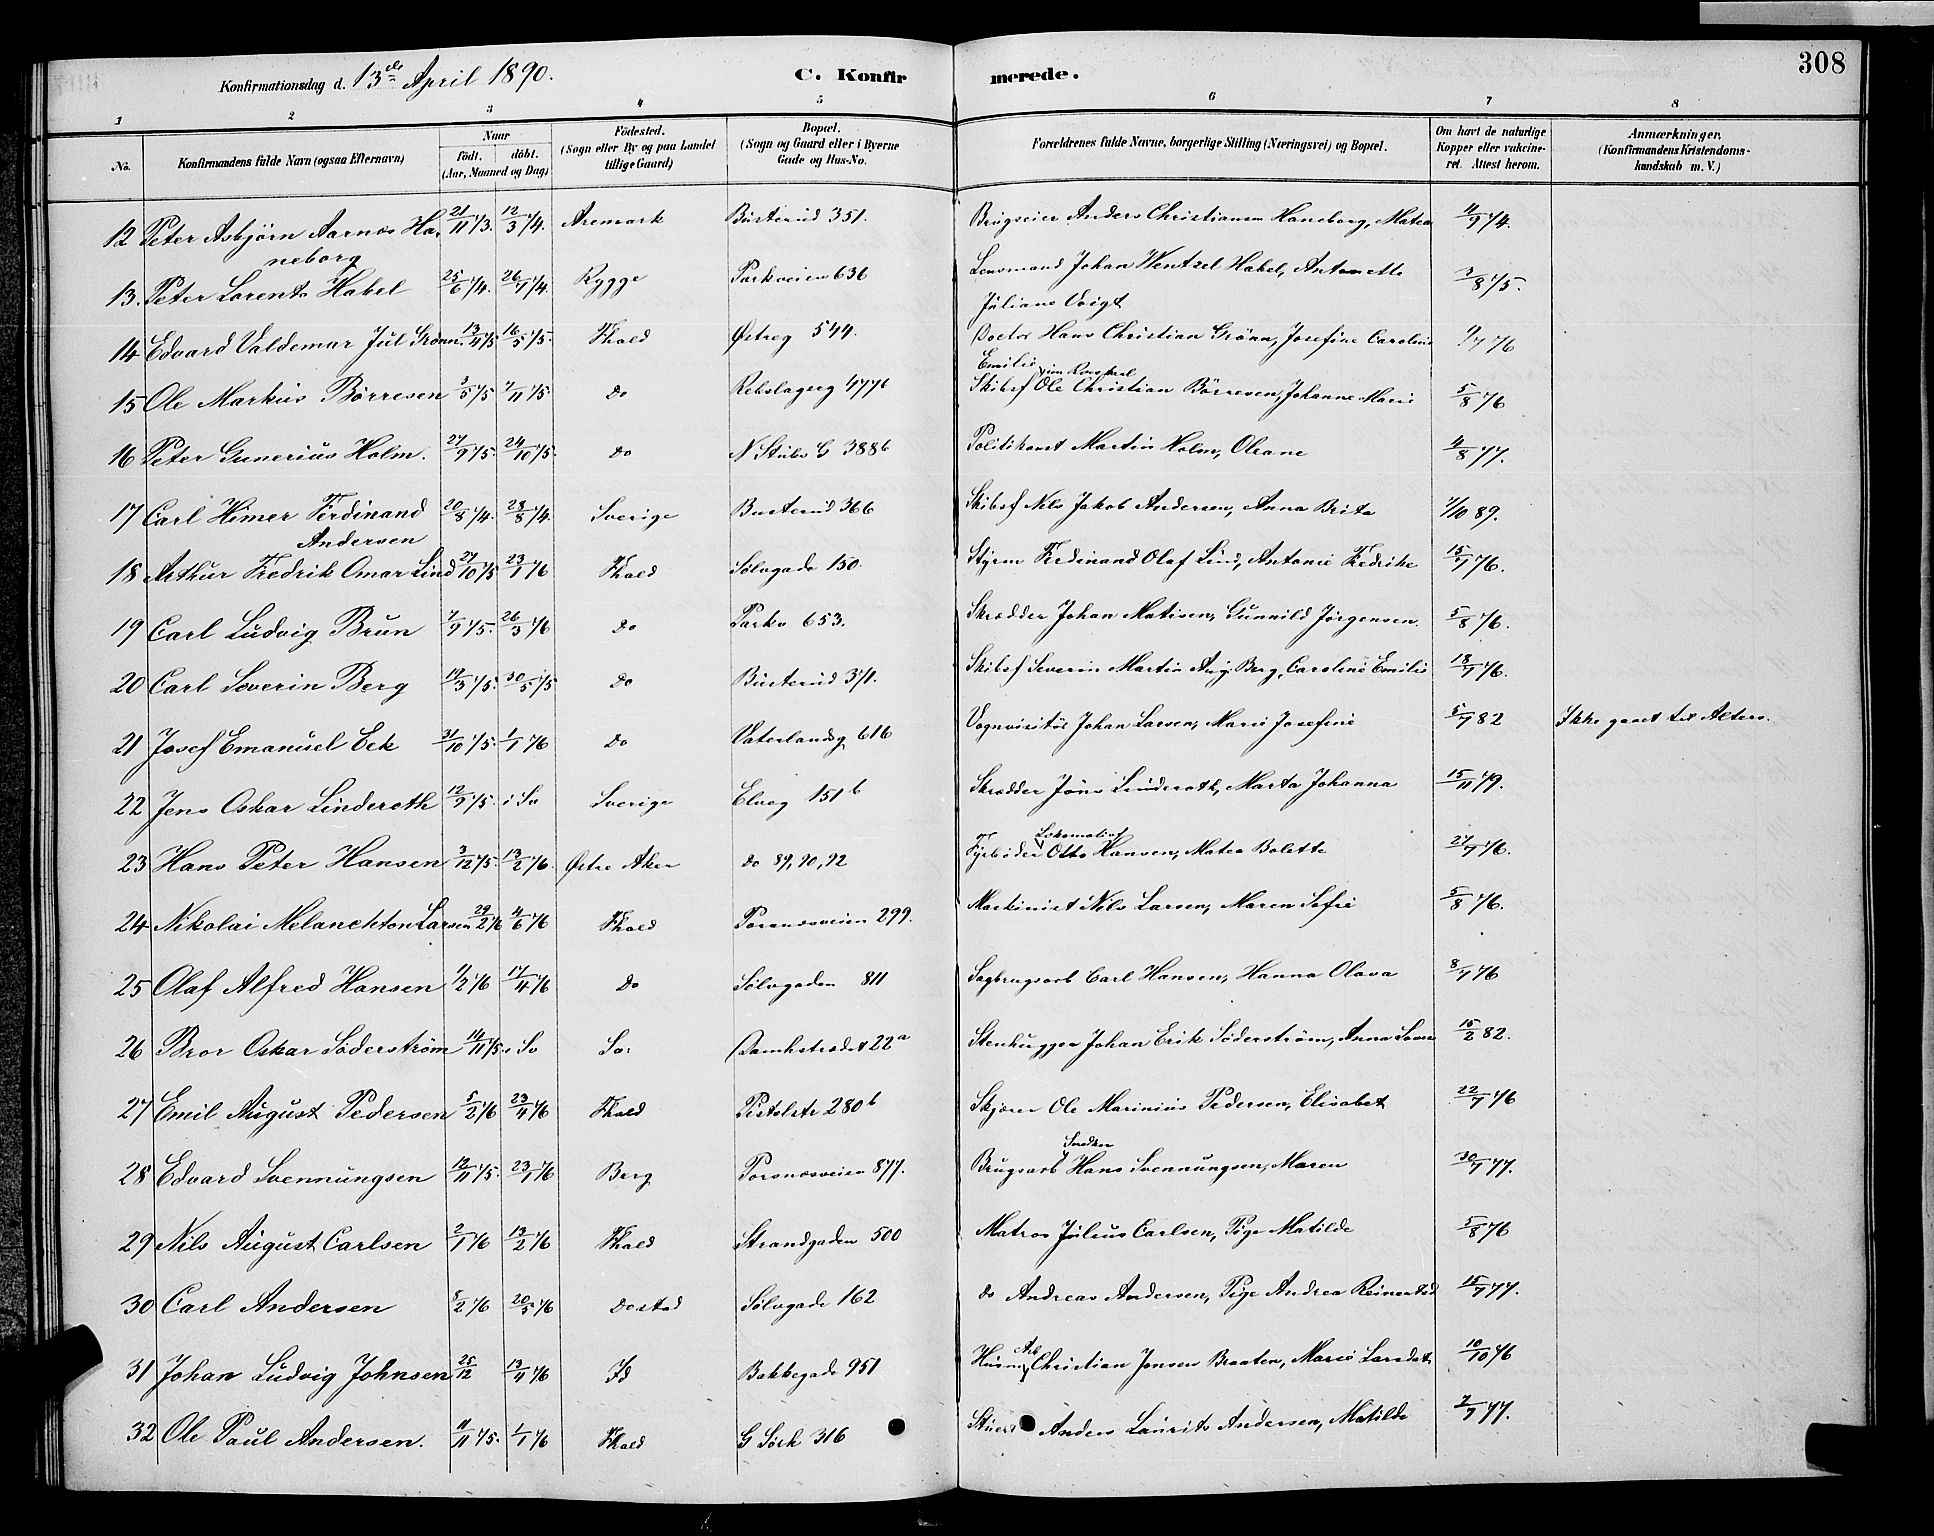 308
Konfirmationsdag d. 13de April 1890.
C. Konfirmerede.
1 2 3 4 5 6 7 8
No.
Konfirmandens fulde Navn (ogsaa Efternavn)
Naar
födt. döbt.
(Aar, Maaned og Dag)
Födested.
(Sogn eller By og paa Landet
tillige Gaard)
Bopæl.
(Sogn og Gaard eller i Byerne
Gade og Hus-No.
Forældrenes fulde Navne, borgerlige Stilling (Næringsvei) og Bopæl.
Om havt de naturlige
Kopper eller vakcine-
ret. Attest herom.
Anmærkninger,
(Konfirmandens Kristendoms-
kundskab m. V.)
12 Peter Asbjörn Aarnes Haneborg 21/11 73. 12/3 74. Aremark Busterud 351. Brugseier Anders Christiansen Haneborg, Matea 4/9 74.
13. Peter Lorents Habel 25/6 74. 26/7 74. Rygge Parkveien 636 Lensmand Johan Wentzel Habel, Antonette Juliane Voigt 3/8 75.
14 Edvard Valdemar Jul Grönn. 13/4 75 16/5 75. Fhald Østreg 544. Doctor Hans Christian Grönn, Josefine Caroline Emilie 9/7 76
15 Ole Markus Börresen 3/5 75 7/11 75. Do Rebslagerg 477b Skibsf Ole Christian Börresen, Johanne Marie 5/8 76
16 Peter Gunerius Holm. 27/9 75. 24/10 75. Do N Stubs G 388b Politikonst Martin Holm, Oleane 4/8 77.
17 Carl Himer Ferdinand Andersen 20/8 74. 28/8 74. Sverige Busterud 366 Skibsf Nils Jakob Andersen, Anna Brita 7/10 89.
18 Arthur Fredrik Omar Lind 27/10 75 23/1 76 Fhald Sølvgade 150. Styrm Ferdinand Olaf Lind, Antonie Fedrike 15/7 76.
19 Carl Ludvig Brun 7/9 75. 26/3 76 Do Parkv 653. Skrædder Johan Matisen, Gunnild Jørgensen. 5/8 76.
20 Carl Severin Berg 14/3 75. 30/5 75 Do Busterud 371. Skibsf Severin Martin Aug. Berg, Caroline Emilie 18/7 76.
21 Josef Emanuel Eek 31/10 75. 1/1 76 Do Vaterlandsg 616 Vognvisitör Johan Larsen, Marie Josefine 5/7 82 Ikke gaaet til Alters.
22 Jens Oskar Linderoth 12/9 75. i Sv Sverige Elveg 151b Skrædder Jöns Linderoth, Marta Johanna 15/11 79.
23 Hans Peter Hansen 3/12 75. 13/2 76. Østre Aker do 89, 90, 92 Lokomotivf Fyrbøder Otto Hansen, Matea Bolette 27/7 76.
24 Nikolai Melanchton Larsen 29/2 76 4/6 76 Fhald Torsnæsveien 299. Maskinist Nils Larsen, Maren Sofie 5/8 76.
25 Olaf Alfred Hansen 1/2 76 17/4 76 Do Sølvgaden 811 Sagbrugsarb Carl Hansen, Hanna Olava 8/7 76
26 Bror Oskar Söderström 14/11 75. i Sv Sv. Damhstrædet 22a Stenhugger Johan Erik Söderström, Anna 15/2 82.
27 Emil August Pedersen 5/2 76 23/4 76 Fhald Pistolstr 280b Skjører Ole Marinius Pedersen, Elisabet 22/7 76
28 Edvard Svennungsen 12/11 75. 23/1 76 Berg Torsnæsveien 877. Brugsarb Hans Svennungsen, Maren 30/7 77.
29 Nils August Carlsen 2/1 76 13/2 76 Fhald Strandgaden 500 Matros Julius Carlsen, Pige Matilde 5/8 76
30 Carl Andersen 8/2 76 20/5 76 Do Sølvgade 162 do Andreas Andersen, Pige Andrea Reinertsd 15/7 77.
31 Johan Ludvig Johnsen 25/12 17/4 76 Id Bakkegade 951 Husm Arb Christian Jensen Braaten, Marie Larsdat 10/10 76
32 Ole Paul Andersen. 11/11 75. 1/1 76 Fhald G Sörh 316 Anders Laurits Andersen, Matilde 7/7 77.